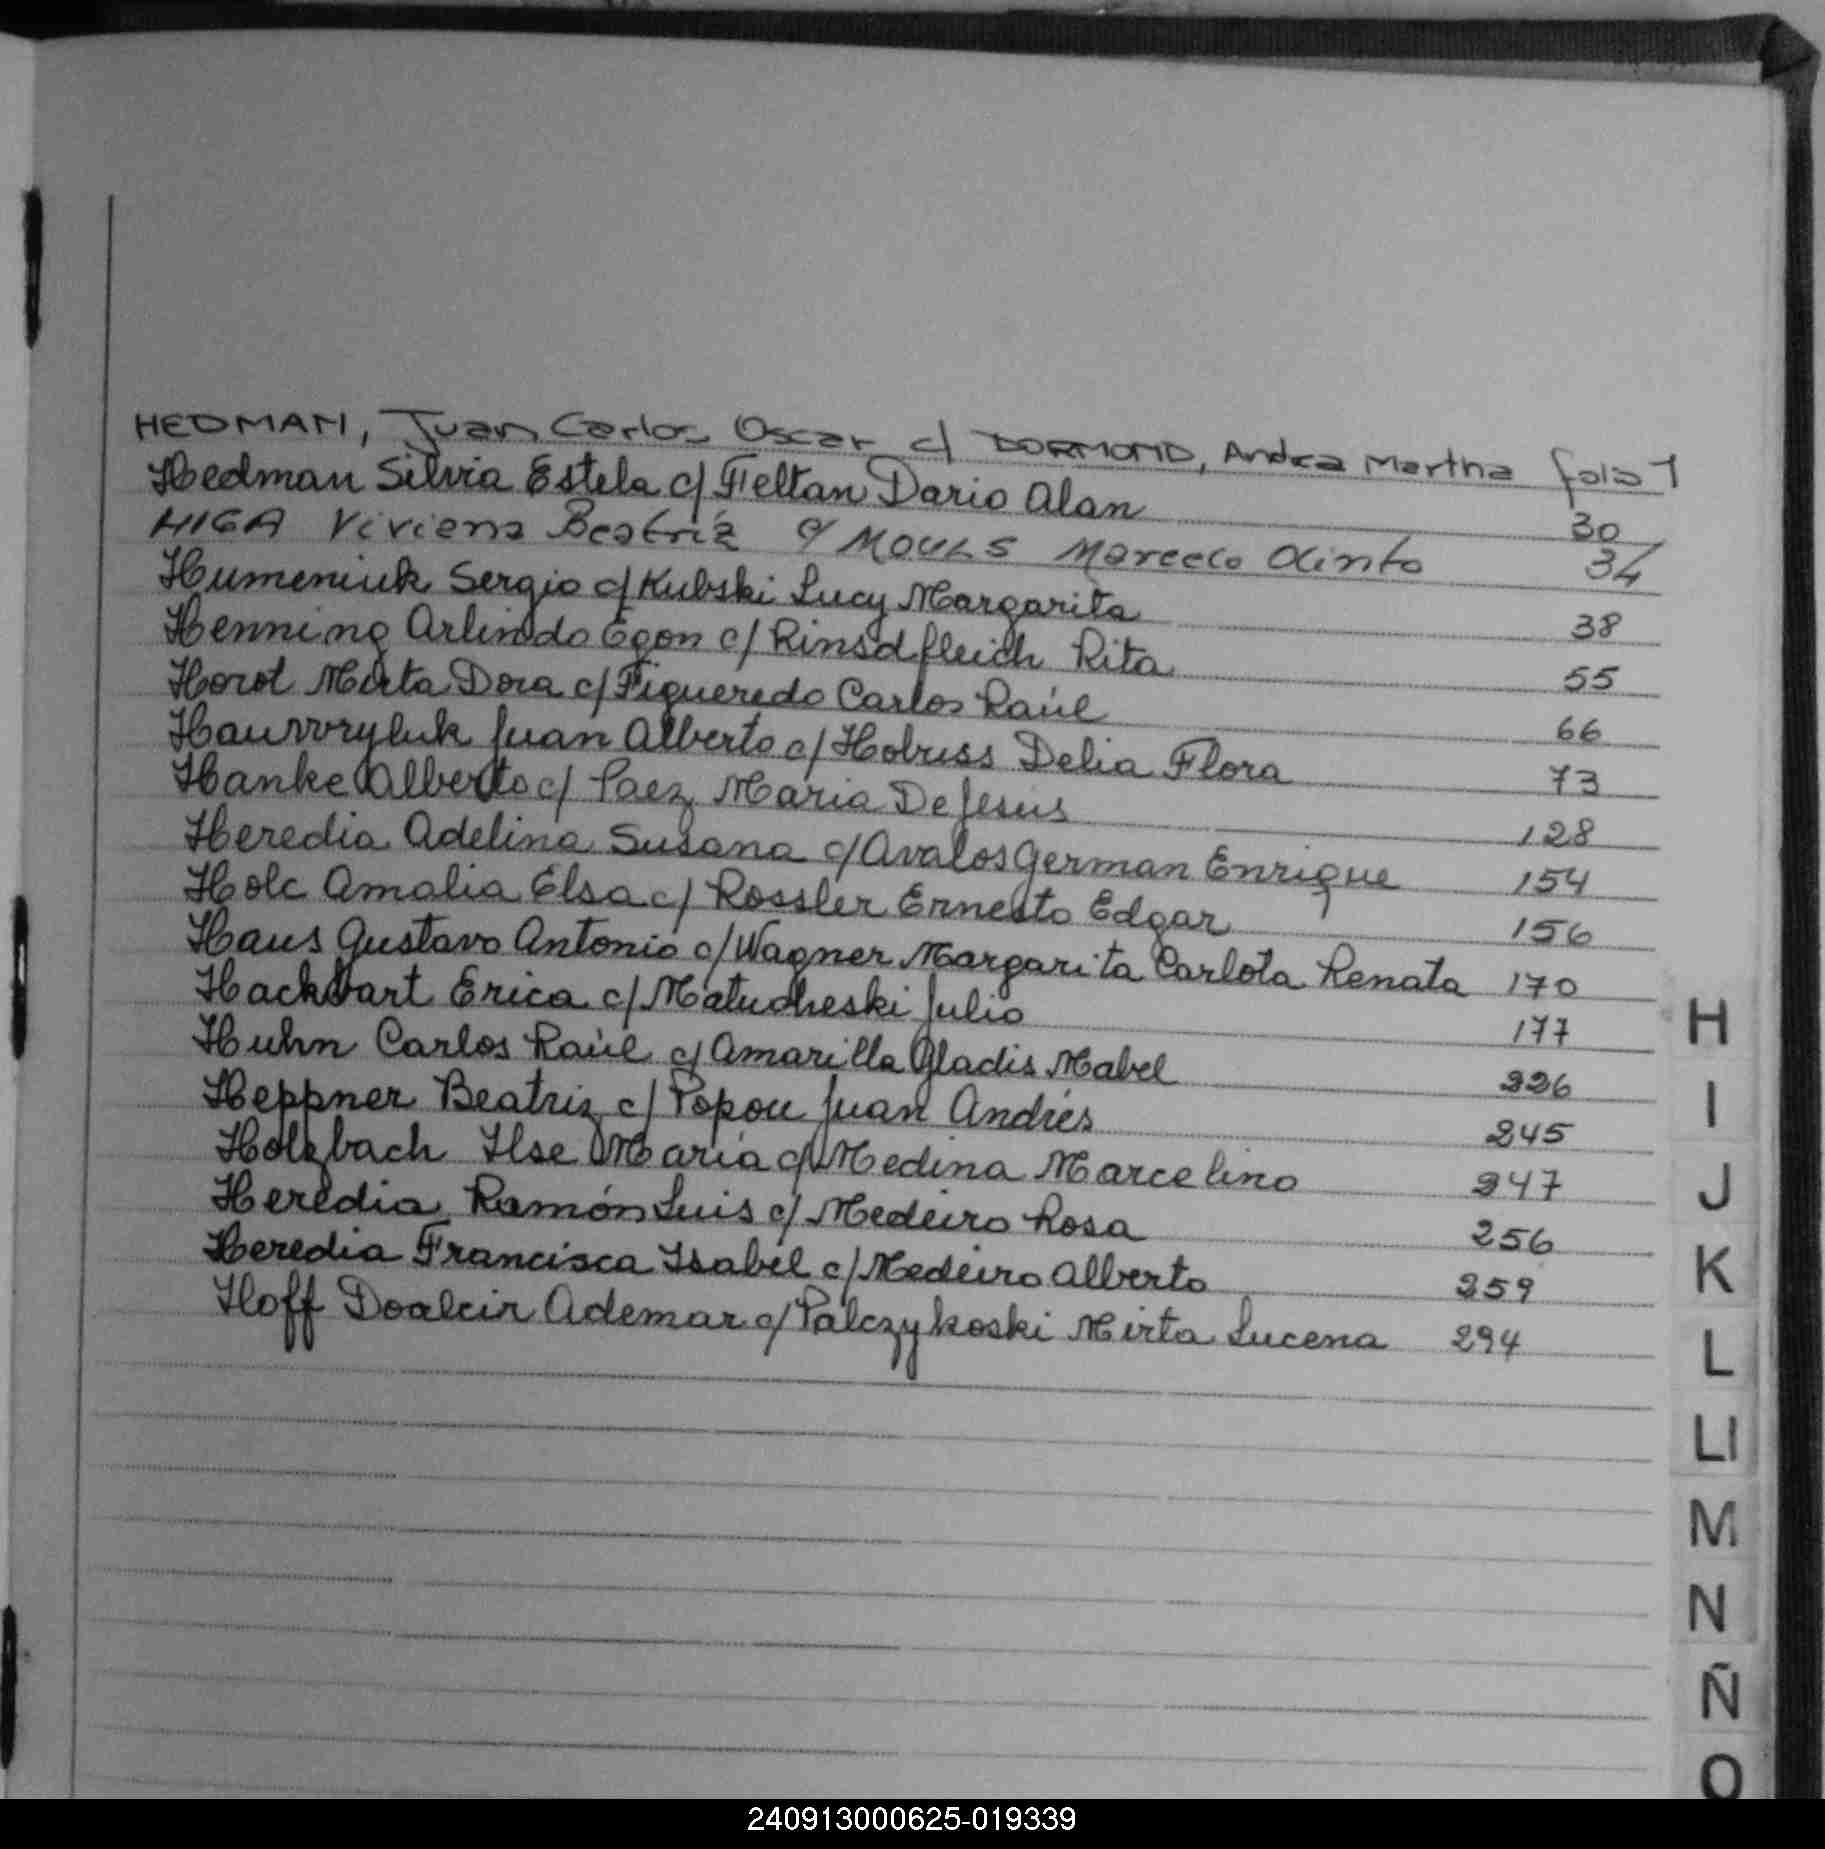 HEDMAN, Juan Carlos Oscar c/ DORMOND, Andrea Martha folio 1
Hedman Silvia Estela c/ Feltan Dario Alan 30
HIGA Viviana Beatriz c/ MOULS Marcelo Olinto 34
Humeniuk Sergio c/ Kubski Lucy Margarita 38
Henning Arlindo Egon c/ Rinsdfleich Rita 55
Horot Mirta Dora c/ Figueredo Carlos Raúl 66
Hauvvryluk Juan Alberto c/ Hobuss Delia Flora 73
Hanke Alberto c/ Paez Maria De Jesus 128
Heredia Adelina Susana c/ Avalos German Enrique 154
Holc Amalia Elsa c/ Rossler Ernesto Edgar 156
Haus Gustavo Antonio c/ Wagner Margarita Carlota Renata 170
Hackbart Erica c/ Matucheski Julio 177
Huhn Carlos Raúl c/ Amarilla Gladis Mabel 226
Heppner Beatriz c/ Popou Juan Andrés 245
Holzbach Ilse María c/ Medina Marcelino 247
Heredia Ramón Luis c/ Medeiro Rosa 256
Heredia Francisca Isabel c/ Medeiro Alberto 259
Hoff Doalcir Ademar c/ Palczykoski Mirta Lucena 294
H
I
J
K
L
Ll
M
N
Ñ
O
240913000625-019339